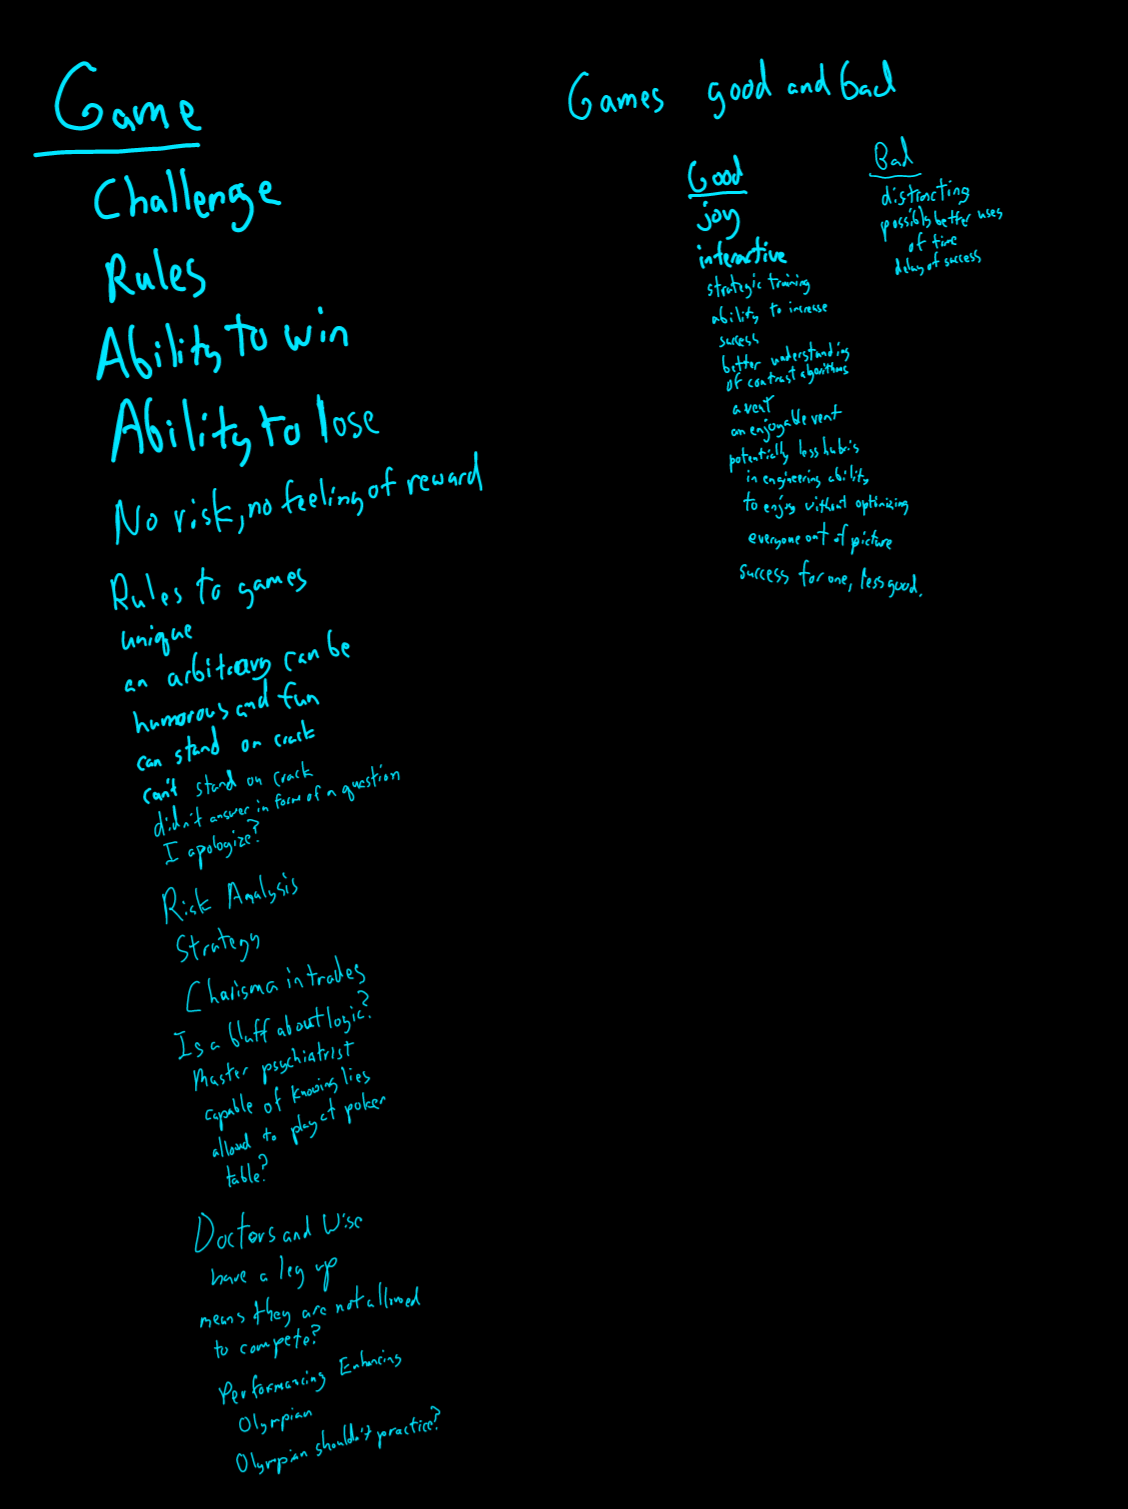 Game
Challenge
Rules
Ability to win
Ability to lose
No risk, no feeling of reward
Rules to games
unique
an arbitrary can be
humorous and fun
can stand on crack
can't stand on crack
didn't answer in form of a question
I apologize?
Risk Analysis
Strategy
Charisma in trades
Is a bluff about logic?
Master psychiatrist
capable of knowing lies
allowed to play at poker
table?
Doctors and Wise
have a leg up
means they are not allowed
to compete?
Performancing Enhancing
Olympian
Olympian shouldn't practice?
Games good and bad
Good
joy
interactive
strategic training
ability to increase
success
better understanding
of contrast algorithms
a vent
an enjoyable vent
potentially less hubris
in engineering ability
to enjoy without optimizing
everyone out of picture
success for one, less good.
Bad
distracting
possibly better uses
of time
delay of success